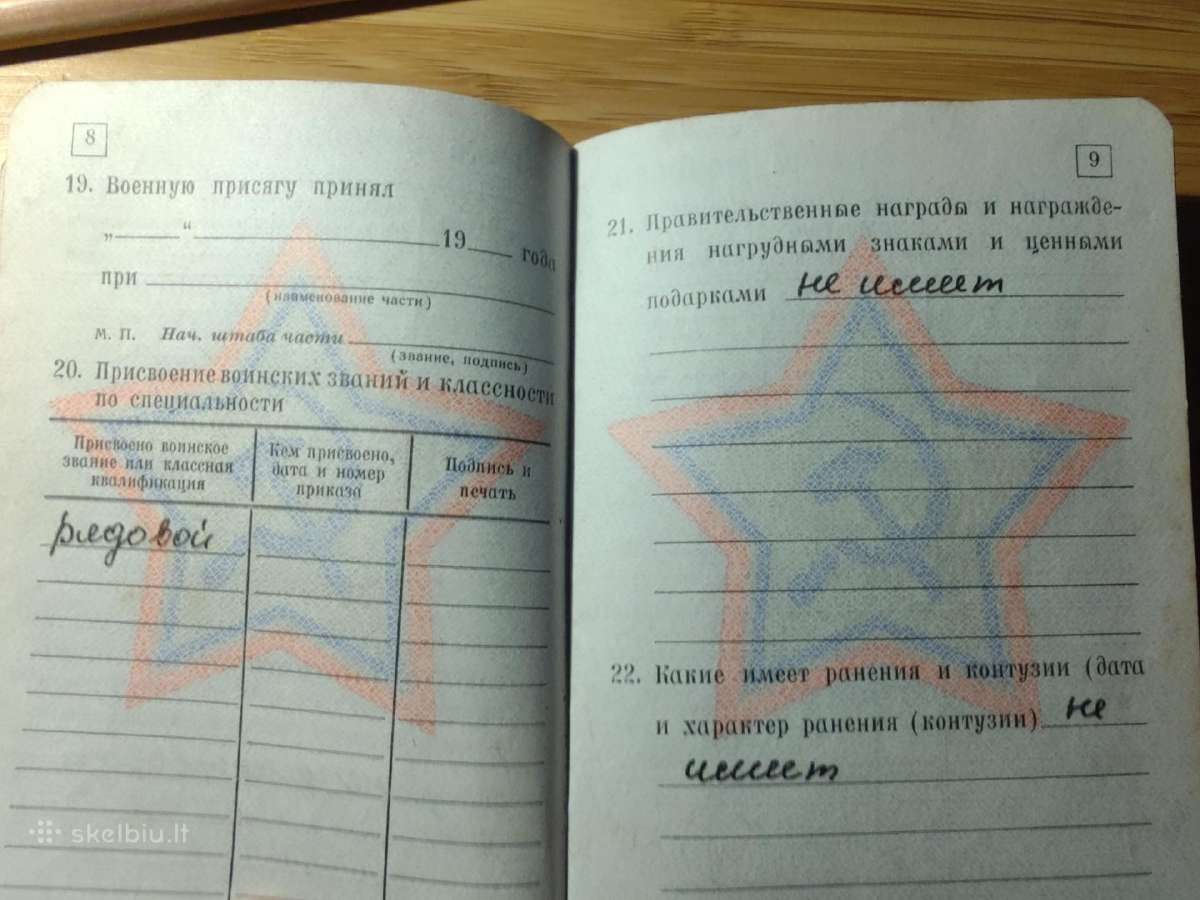 8
19. Военную присягу принял
„ “ 19 года
при
(наименование части)
м. п. Нач. штаба части
(звание, подпись)
20. Присвоение воинских званий и классности
по специальности
Присвоено воинское
звание или классная
квалификация
Кем присвоено,
дата и номер
приказа
Подпись и
печать
рядовой
9
21. Правительственные награды и награжде-
ния нагрудными знаками и ценными
подарками не имеет
22. Какие имеет ранения и контузии (дата
и характер ранения (контузии) не
имеет
skelbiu.lt